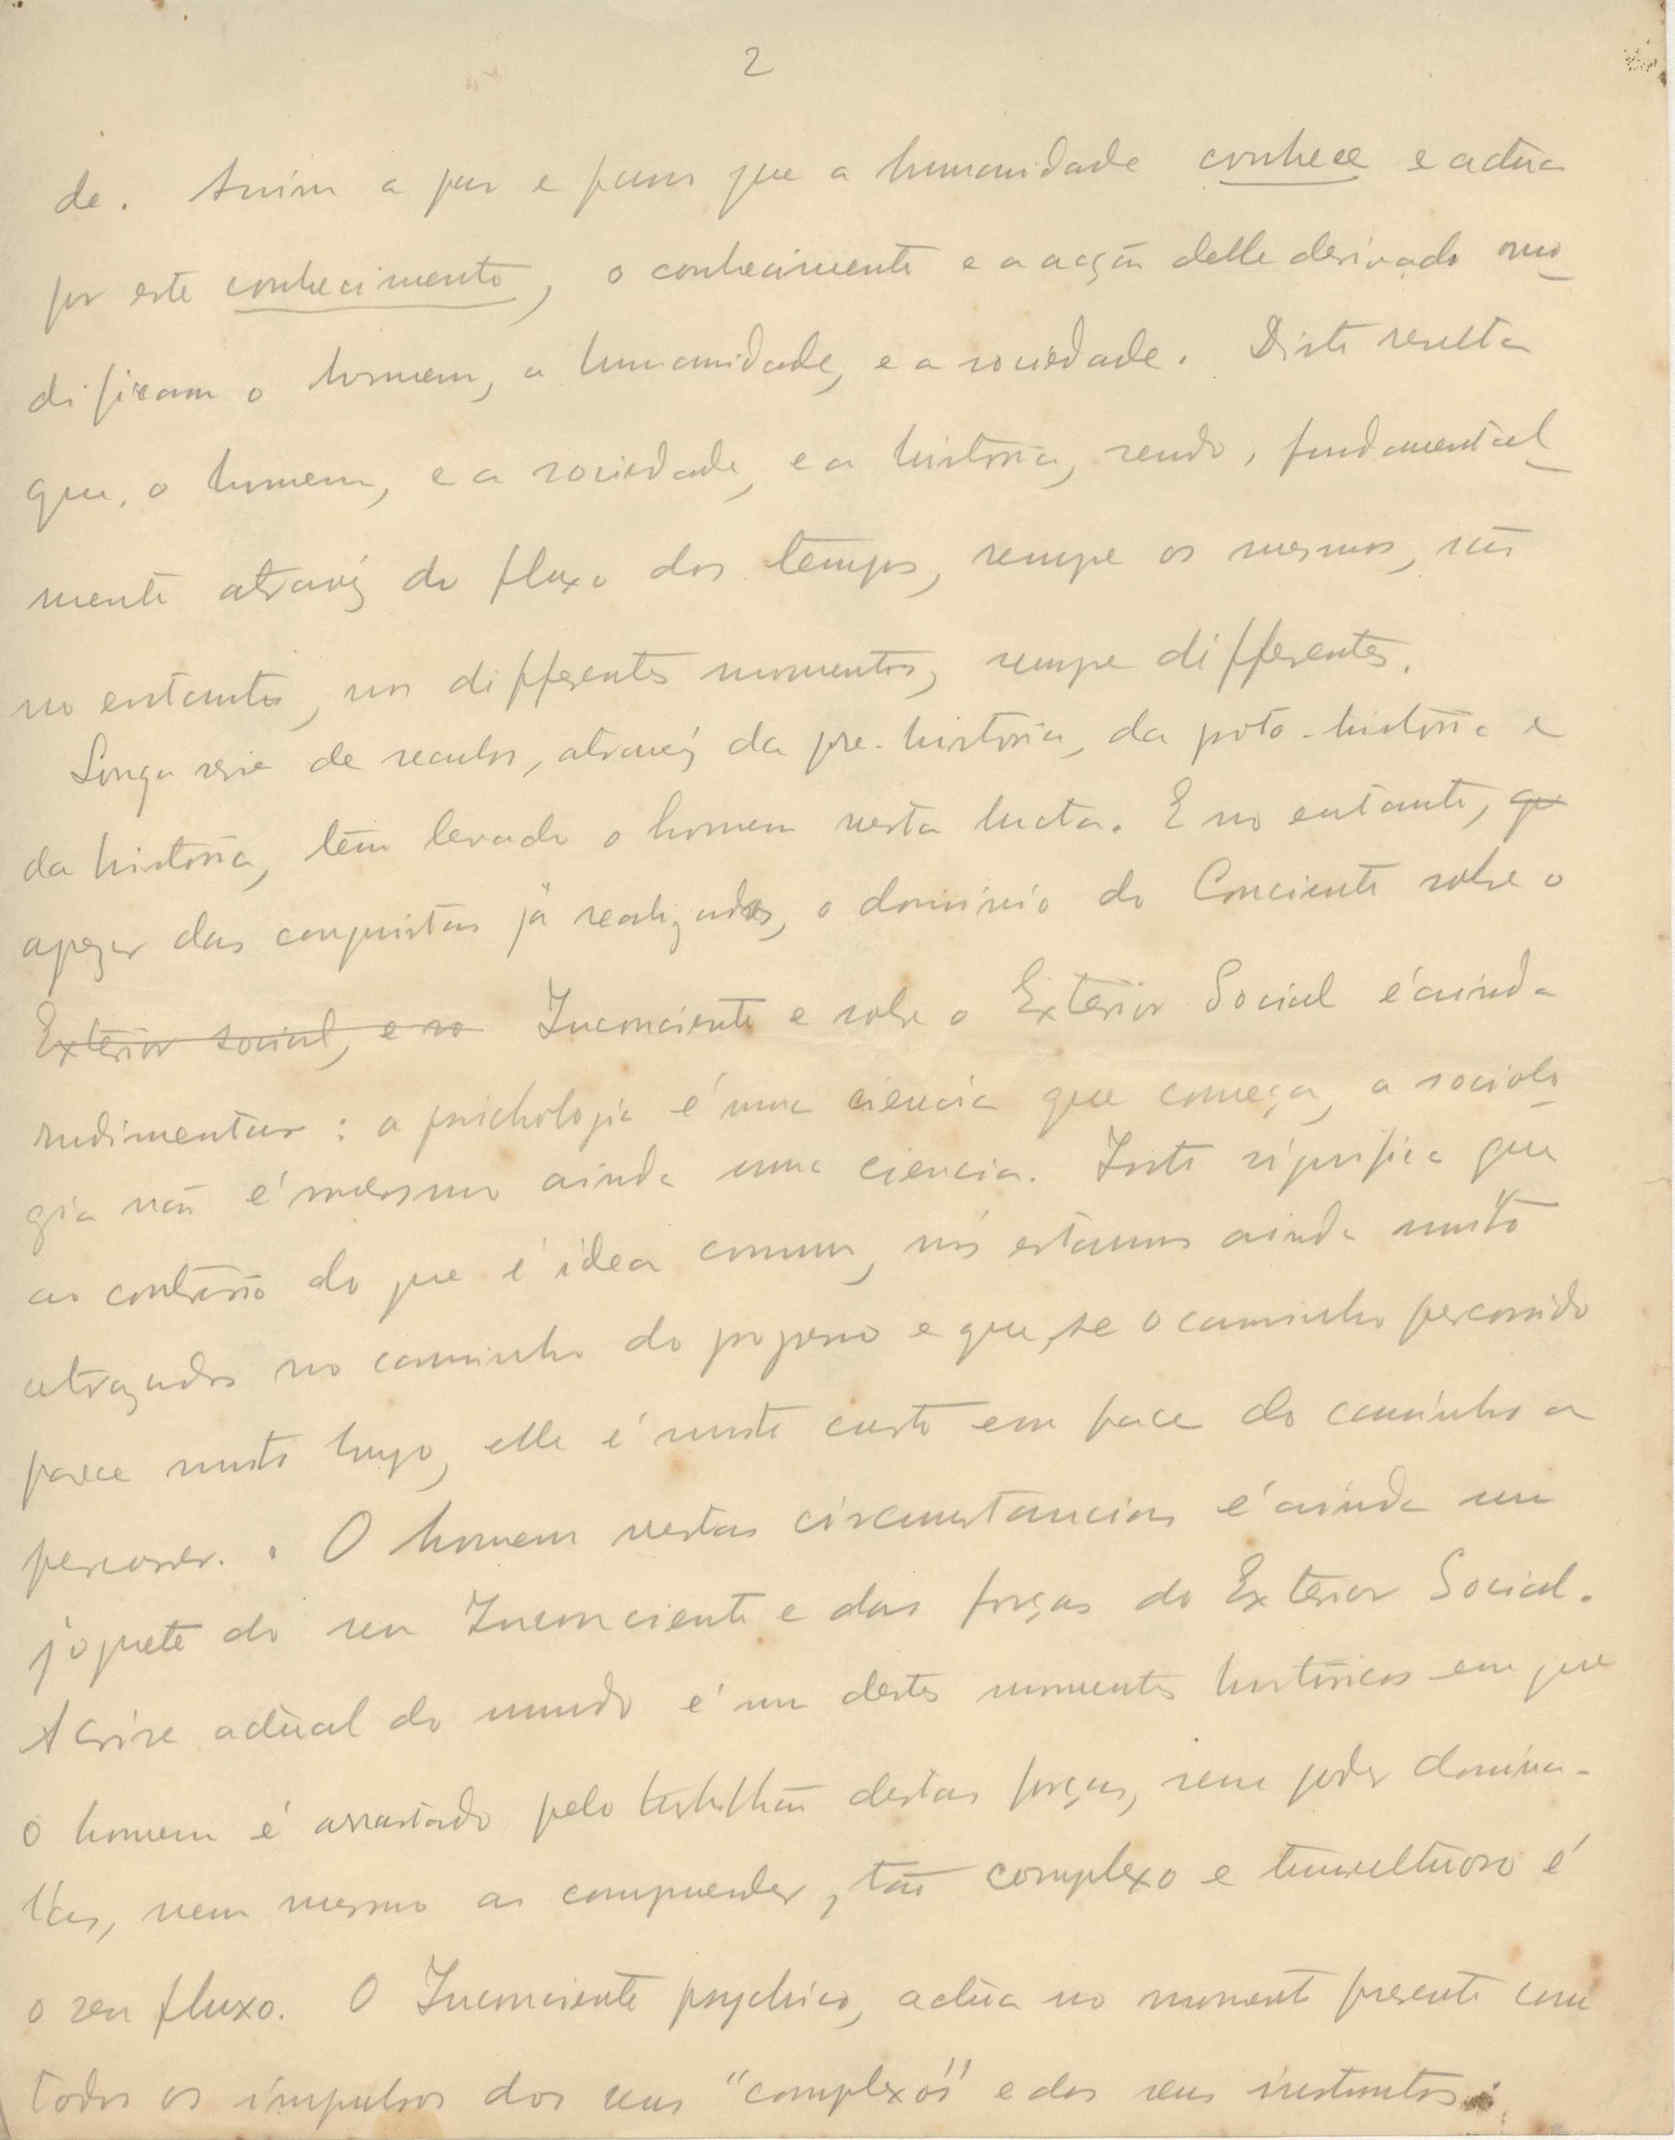 2
de. Assim a par e passo que a humanidade conhece e actúa
por este conhecimento, o conhecimento e a acção delle derivado mo
dificam o homem, a humanidade, e a sociedade. Disto resulta
que, o homem, e a sociedade, e a historia, sendo, fundamental
mente atravéz do fluxo dos tempos, sempre os mesmos, são
no entanto, nos differentes momentos, sempre differentes.
Longa serie de seculos, atravéz da pre-historia, da proto-historia e
da historia, têm levado o homem nesta lucta. E no entanto, que
apezar das conquistas já realizadas, o dominio do Conciente sobre o
Exterior social, e so Inconciente e sobre o Exterior Social é ainda
rudimentar: a psichologia é uma ciencia que começa, a sociolo
gia não é mesmo ainda uma ciencia. Isto significa que
ao contrario do que é idea comum, nós estamos ainda muito
atrazados no caminho do progresso e que, se o caminho percorrido
parece muito longo, elle é muito curto em face do caminho a
percorrer. O homem nestas circumstancias é ainda um
joguete do seu Inconciente e das forças do Exterior Social.
A crise actual do mundo é um destes momentos historicos em que
o homem é arrastado pelo turbilhão destas forças, sem poder domina-
l'as, nem mesmo as compreender, tão complexo e tumultuoso é
o seu fluxo. O Inconciente psychico, actúa no momento presente com
todos os impulsos dos seus "complexos" e dos seus instintos.